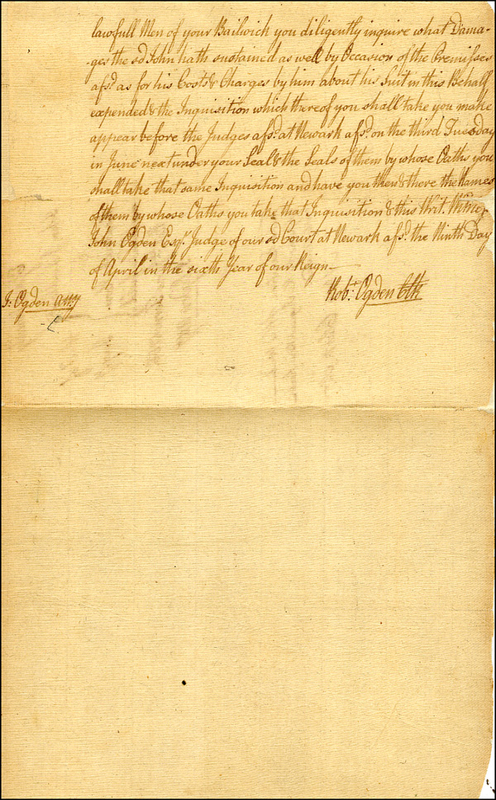 lawfull Men of your Bailwick you diligently inquire what Dama-
-ges the sd John hath sustained as well by Occasion of the Premisses
afsd as for his Costs & Charges by him about his Suit in this Behalf
expended & the Inquisition which thereof you shall take you make
appear before the Judges afsd at Newark afsd on the third Tuesday
in June next under your Seal & the Seals of them by whose Oaths you
shall take that same Inquisition and have you then & there the Names
of them by whose Oaths you take that Inquisition & this Writ. Witness
John Ogden Esqr Judge of our sd Court at Newark afsd the Ninth Day
of April in the sixth Year of our Reign—
J: Ogden Atty
Robt Ogden Clk